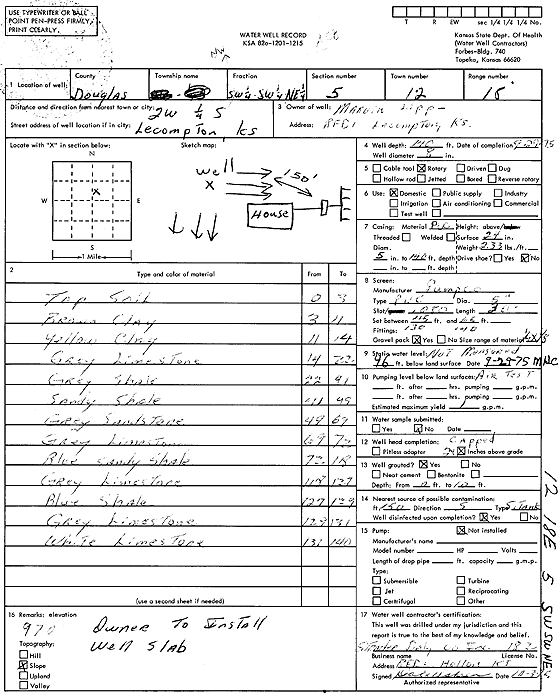 USE TYPEWRITER OR BALL
POINT PEN-PRESS FIRMLY,
PRINT CLEARLY.
WATER WELL RECORD
KSA 82a-1201-1215
T R EW sec 1/4 1/4 1/4 No.
Kansas State Dept. Of Health
(Water Well Contractors)
Forbes-Bldg. 740
Topeka, Kansas 66620
1 Location of well: County Township name Fraction Section number Town number Range number
Douglas SW¼-SW¼NE¼ 5 12 18
Distance and direction from nearest town or city: 2W ¼ S
Street address of well location if in city: Lecompton KS
3 Owner of well: Marvin
Address: RFD1 Lecompton, KS.
Locate with "X" in section below:
N
W X E
S
1 Mile
Sketch map:
Well
X
150'
House
4 Well depth: 140 ft. Date of completion 9-29-75
Well diameter in.
5 Cable tool X Rotary Driven Dug
Hollow rod Jetted Bored Reverse rotary
6 Use: X Domestic Public supply Industry
Irrigation Air conditioning Commercial
Test well
7 Casing: Material PVC Height: above/below
Threaded Welded Surface 24 in.
Diam. Weight 2.33 lbs./ft.
5 in. to 140 ft. depth Drive shoe? Yes X No
in. to ft. depth
8 Screen:
Manufacturer
Type PVC Dia. 5"
Slot/ Length
Set between 115 ft. and ft.
Fittings: 130 140
Gravel pack X Yes No Size range of material
9 Static water level: Not Measured
96 ft. below land surface Date 9-29-75
10 Pumping level below land surfaces: Air Test
ft. after hrs. pumping g.p.m.
ft. after hrs. pumping g.p.m.
Estimated maximum yield 1 g.p.m.
11 Water sample submitted:
Yes X No
12 Well head completion: Capped
Pitless adapter 24 X Inches above grade
13 Well grouted? X Yes No
Neat cement Bentonite
Depth: From 0 ft. to 10 ft.
14 Nearest source of possible contamination:
ft 150 Direction S Type S. Tank
Well disinfected upon completion? X Yes No
15 Pump: X Not installed
Manufacturer's name
Model number HP Volts
Length of drop pipe ft. capacity g.m.p.
Type:
Submersible Turbine
Jet Reciprocating
Centrifugal Other
2 Type and color of material From To
Top Soil 0 3
Brown Clay 3 11
Yellow Clay 11 14
Grey Limestone 14 22
Grey Shale 22 41
Sandy Shale 41 49
Grey Sandstone 49 69
Grey Limestone 69 72
Blue Sandy Shale 72 118
Grey Limestone 118 127
Blue Shale 127 129
Grey Limestone 129 131
White Limestone 131 140
(use a second sheet if needed)
16 Remarks: elevation
970 Owner To Install
Well Slab
Topography:
Hill
X Slope
Upland
Valley
17 Water well contractor's certification:
This well was drilled under my jurisdiction and this
report is true to the best of my knowledge and belief.
Business name License No.
Address RFD1 Holton KS
Signed Date
Authorized representative
12 18E 5 SW SW NE